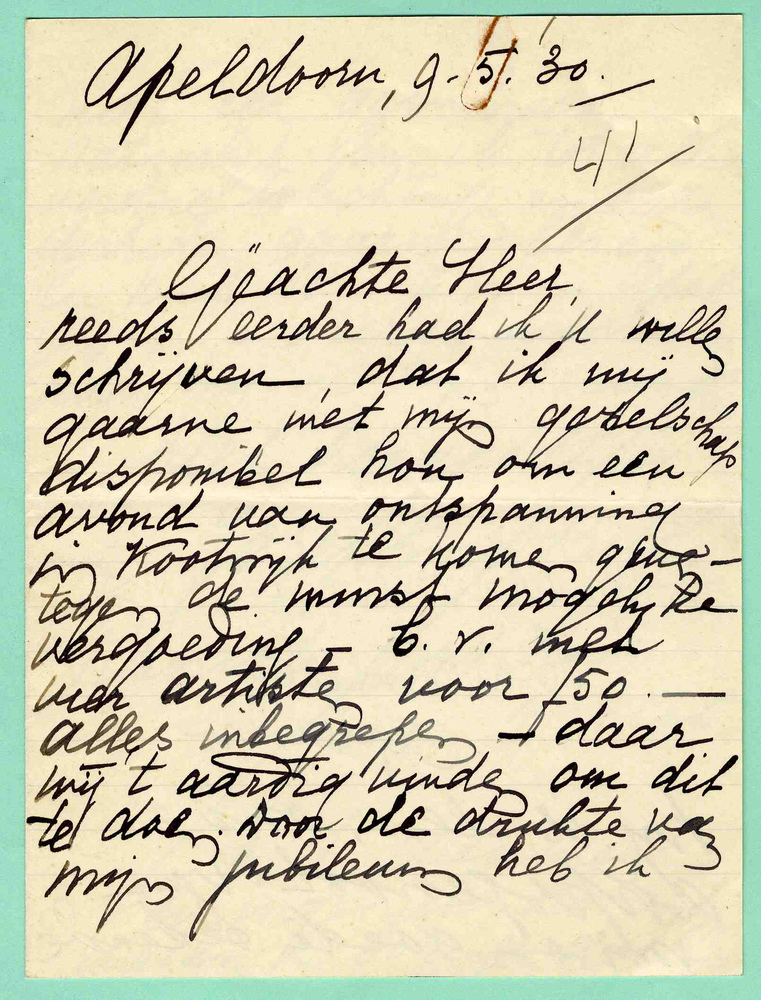 Apeldoorn, 9.5.'30.
41
Geachte Heer,
reeds eerder had ik U willen
schrijven, dat ik mij
gaarne met mijn gezelschap
disponibel hou om een
avond van ontspanning
in Kootwijk te komen geven
tegen de minst mogelijke
vergoeding – b.v. met
vier artisten voor f50.—
alles inbegrepen – daar
wij 't aardig vinden om dit
te doen. Door de drukte van
mijn jubileum heb ik